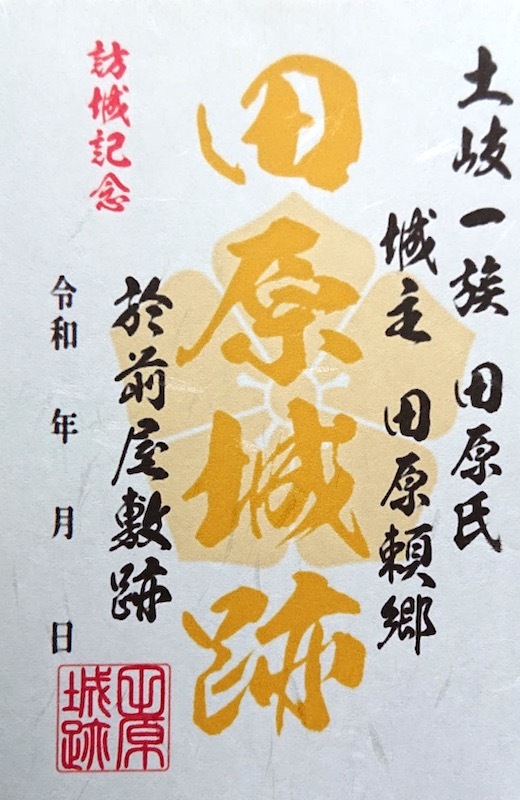 土岐一族 田原氏
城主 田原頼郷
田原城跡
於前屋敷跡
訪城記念
令和 年 月 日
田原
城跡